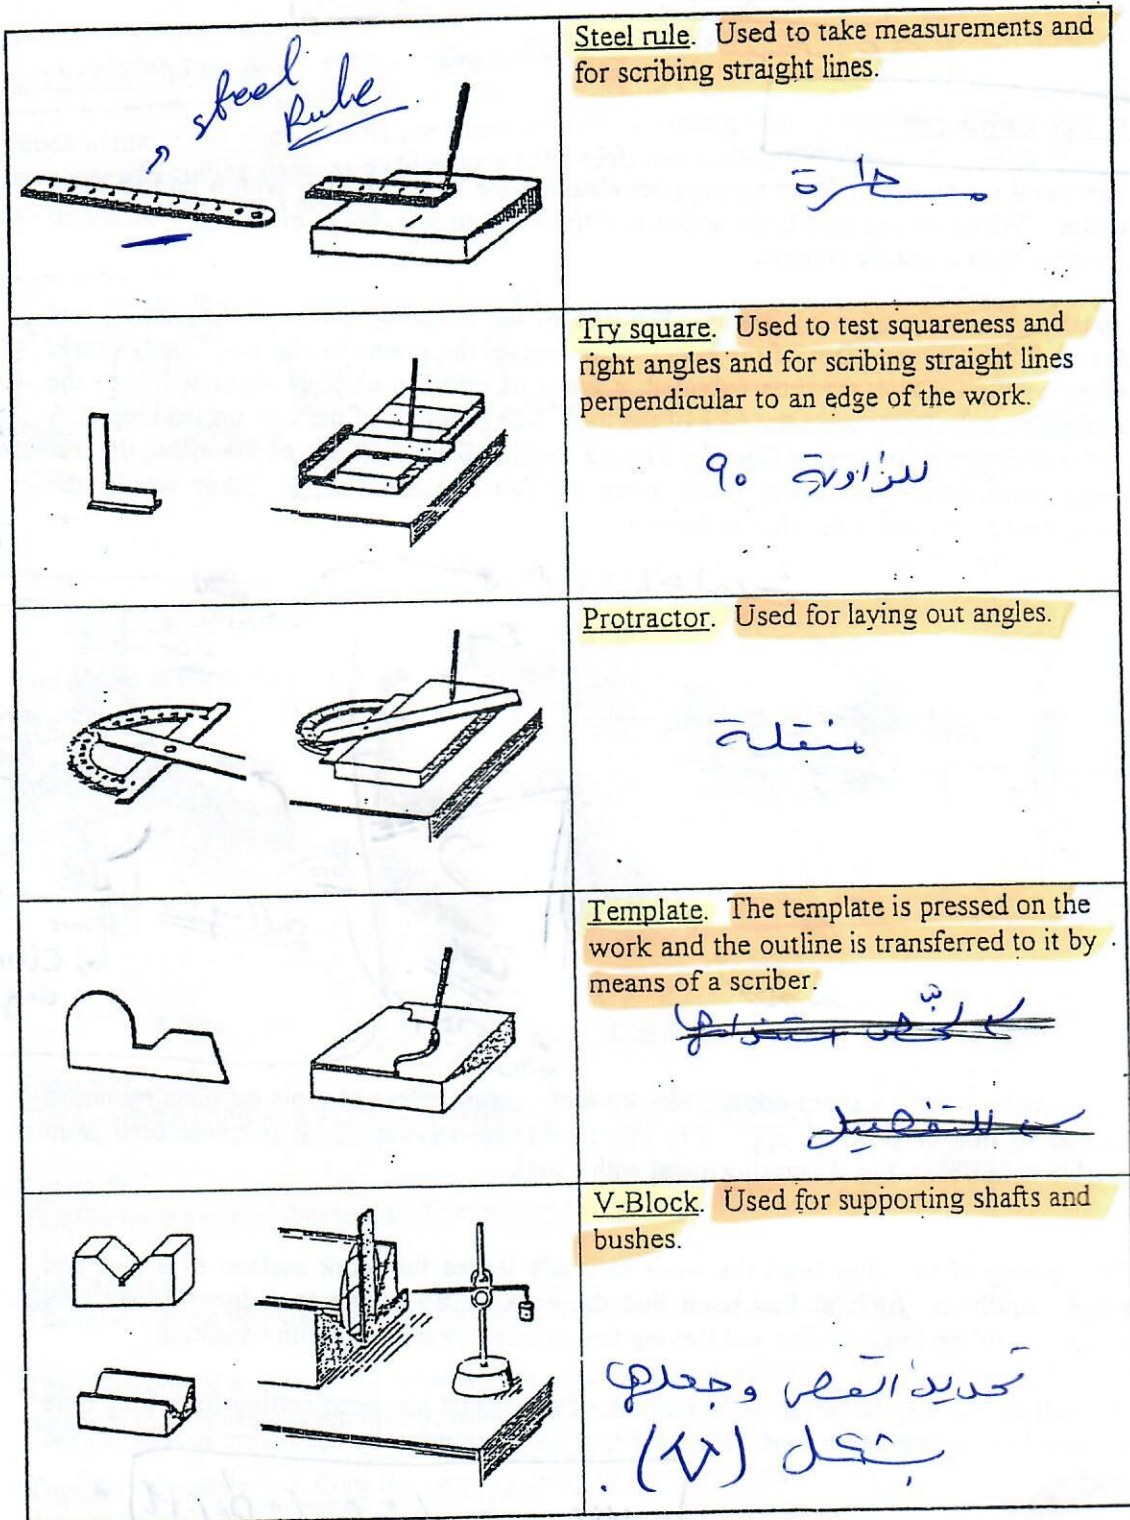 Steel rule. Used to take measurements and
for scribing straight lines.
steel
Rule
مسطرة
Try square. Used to test squareness and
right angles and for scribing straight lines
perpendicular to an edge of the work.
للزاوية ٩٠
Protractor. Used for laying out angles.
منقلة
Template. The template is pressed on the
work and the outline is transferred to it by
means of a scriber.
للتفصيل
V-Block. Used for supporting shafts and
bushes.
تحديد القص وجعلها
بشكل (V)